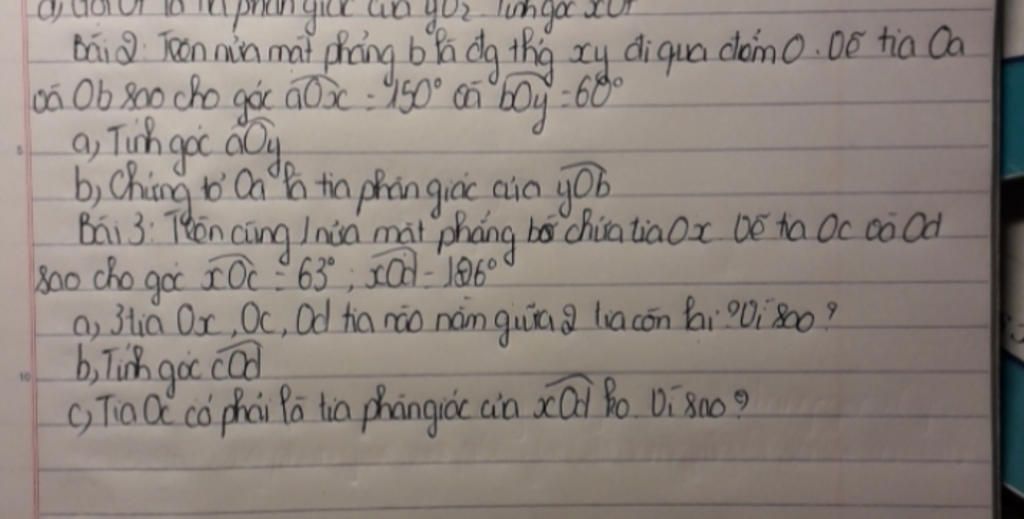 Bài 2: Trên nửa mặt phẳng bờ là đg thg xy đi qua điểm O. Vẽ tia Oa
và Ob sao cho góc aOx = 150° và bOy = 60°
a, Tính góc aOy
b, Chứng tỏ Oa là tia phân giác của yOb
Bài 3: Trên cùng 1 nửa mặt phẳng bờ chứa tia Ox vẽ tia Oc và Od
sao cho góc xOc = 63°; xOd = 126°
a, 3 tia Ox, Oc, Od tia nào nằm giữa 2 tia còn lại? Vì sao?
b, Tính góc cOd
c, Tia Oc có phải là tia phân giác của xOd ko. Vì sao?